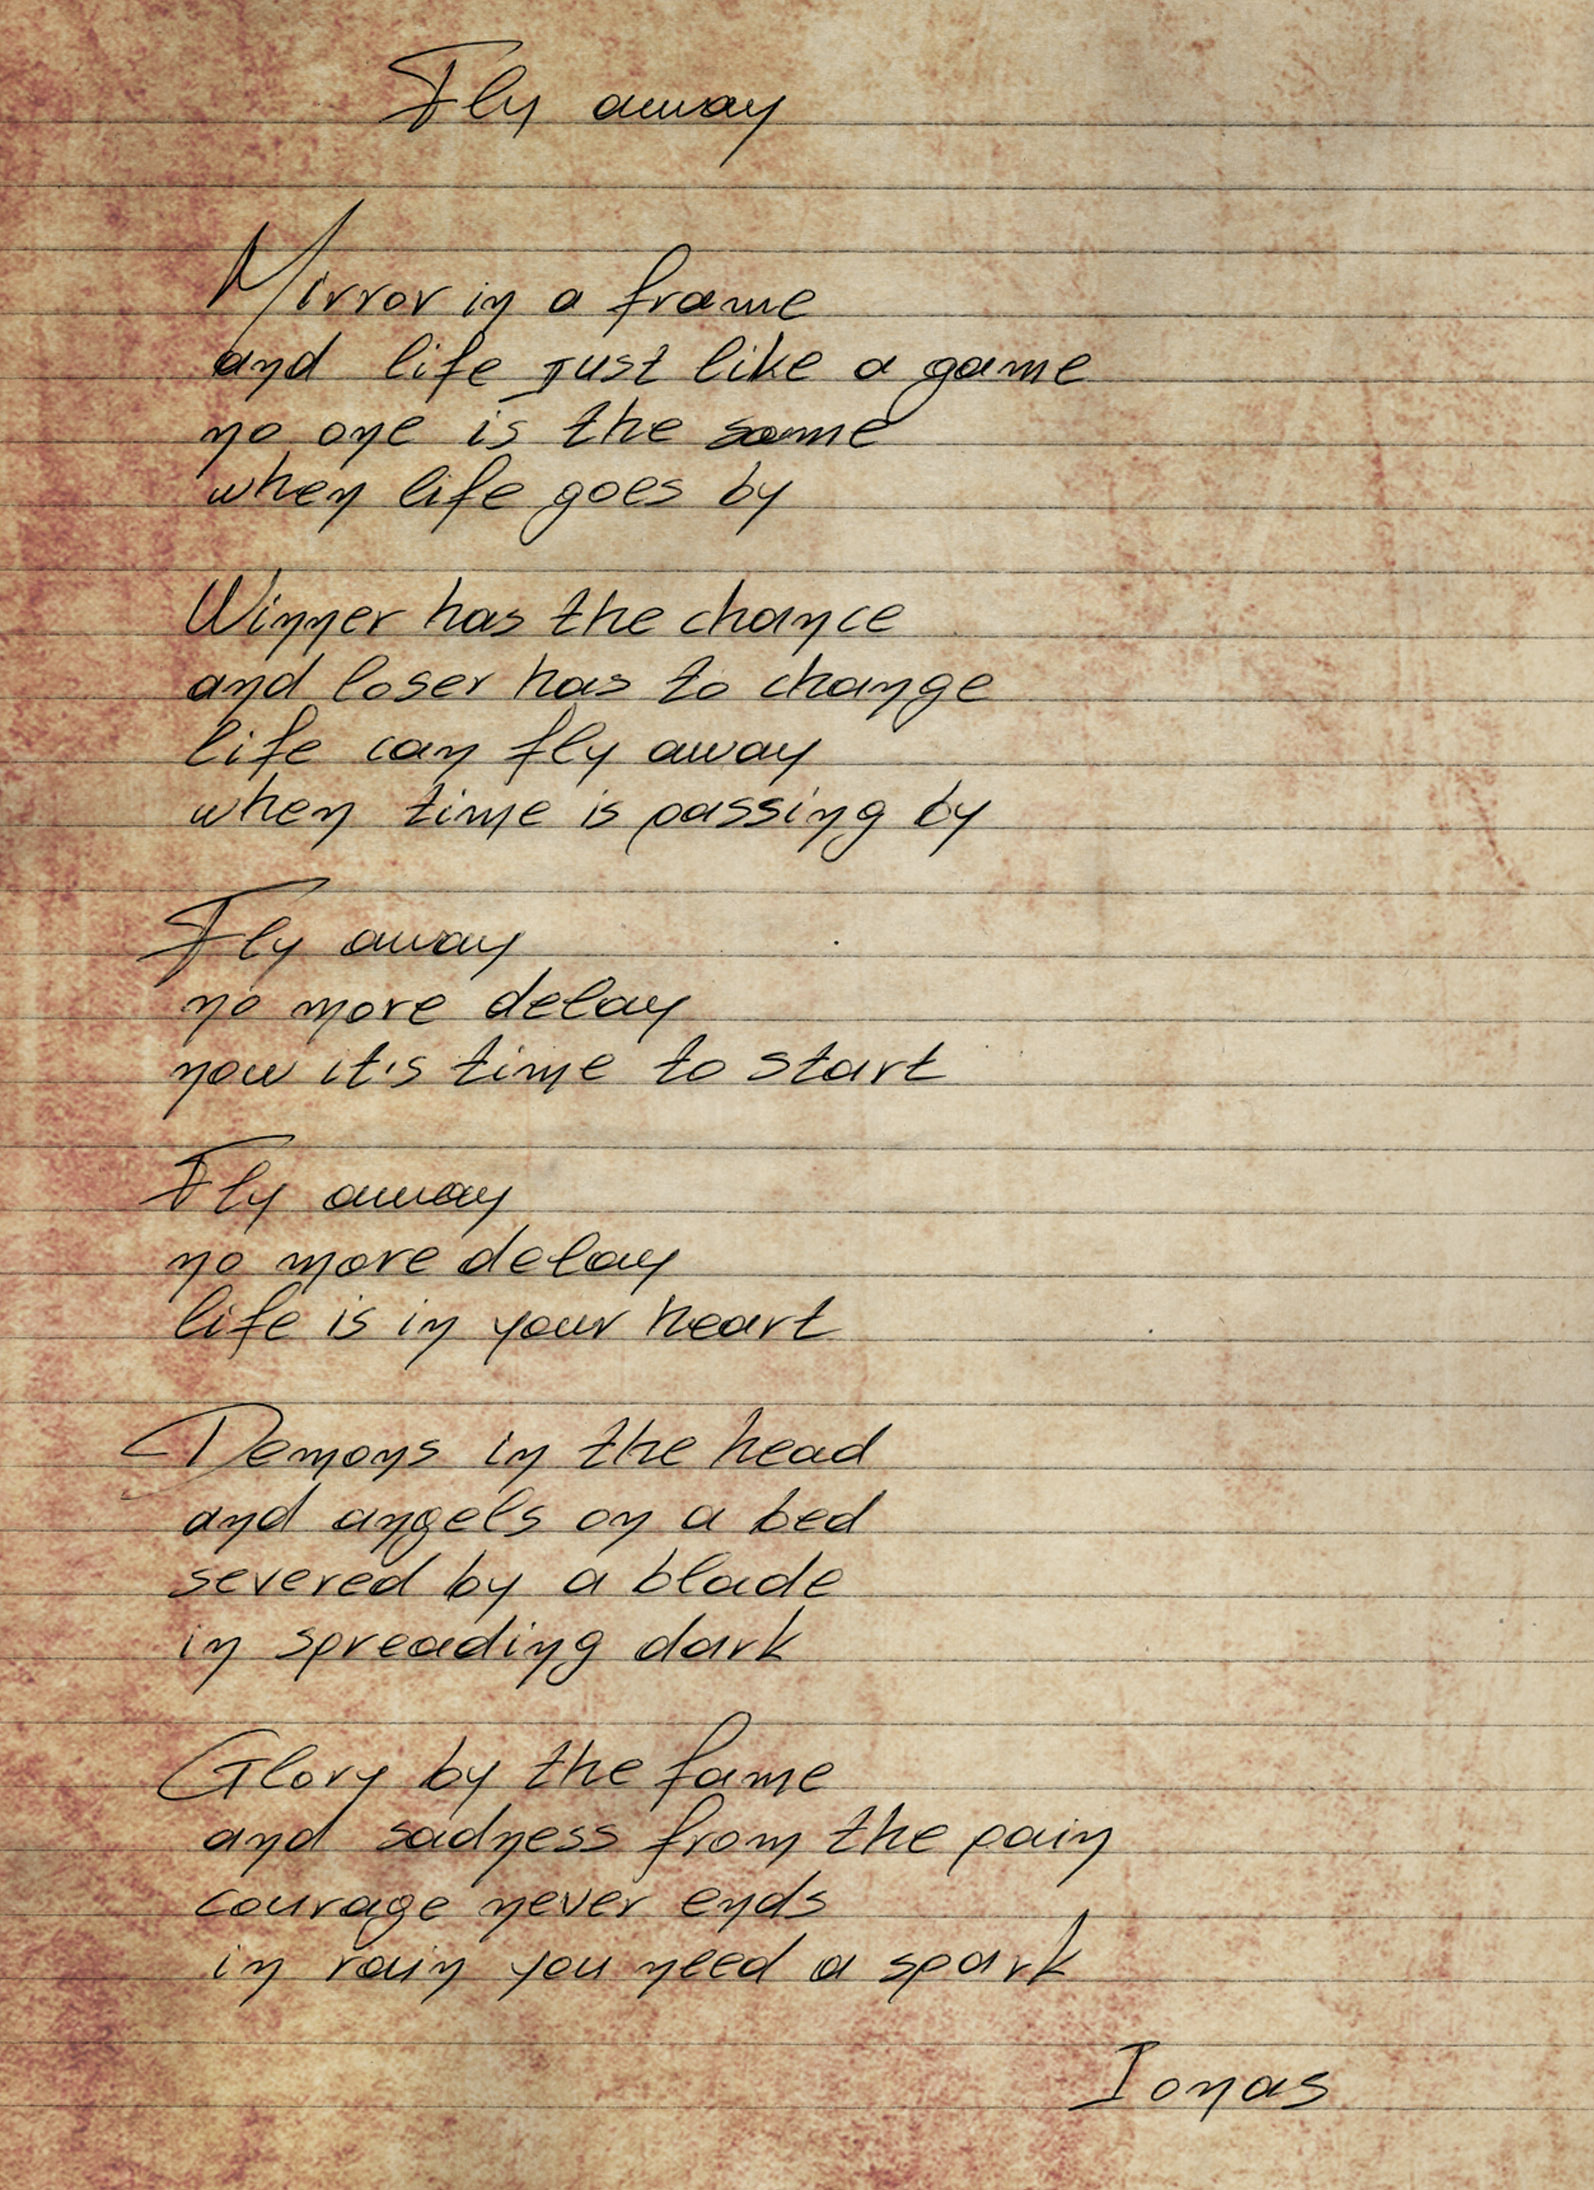 Fly away
Mirror in a frame
and life just like a game
no one is the same
when life goes by
Winner has the chance
and loser has to change
life can fly away
when time is passing by
Fly away
no more delay
now it's time to start
Fly away
no more delay
life is in your heart
Demons in the head
and angels on a bed
severed by a blade
in spreading dark
Glory by the fame
and sadness from the pain
courage never ends
in rain you need a spark
Ionas